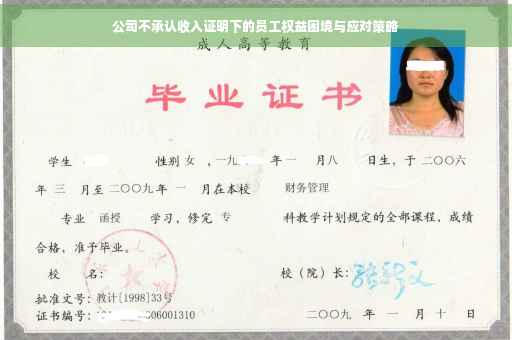 公司不承认收入证明下的员工权益困境与应对策略
成人高等教育
毕业证书
学生 性别 女 ,一九 年 一 月八 日生，于 二〇〇六
年 三 月至 二〇〇九 年 一 月在本校 财务管理
专业 函授 学习，修完 专 科教学计划规定的全部课程，成绩
合格，准予毕业。
校 名： 校（院）长：
批准文号：教计[1998]33号
证书编号： 06001310 二〇〇九 年 一 月 十 日